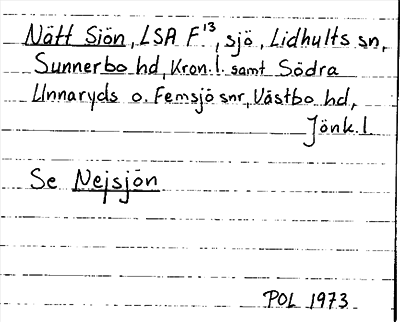 Nätt Siön, LSA F¹³, sjö, Lidhults sn,
Sunnerbo hd, Kron.l. samt Södra
Unnaryds o. Femsjö snr, Västbo hd,
Jönk.l.
Se Nejsjön
POL 1973